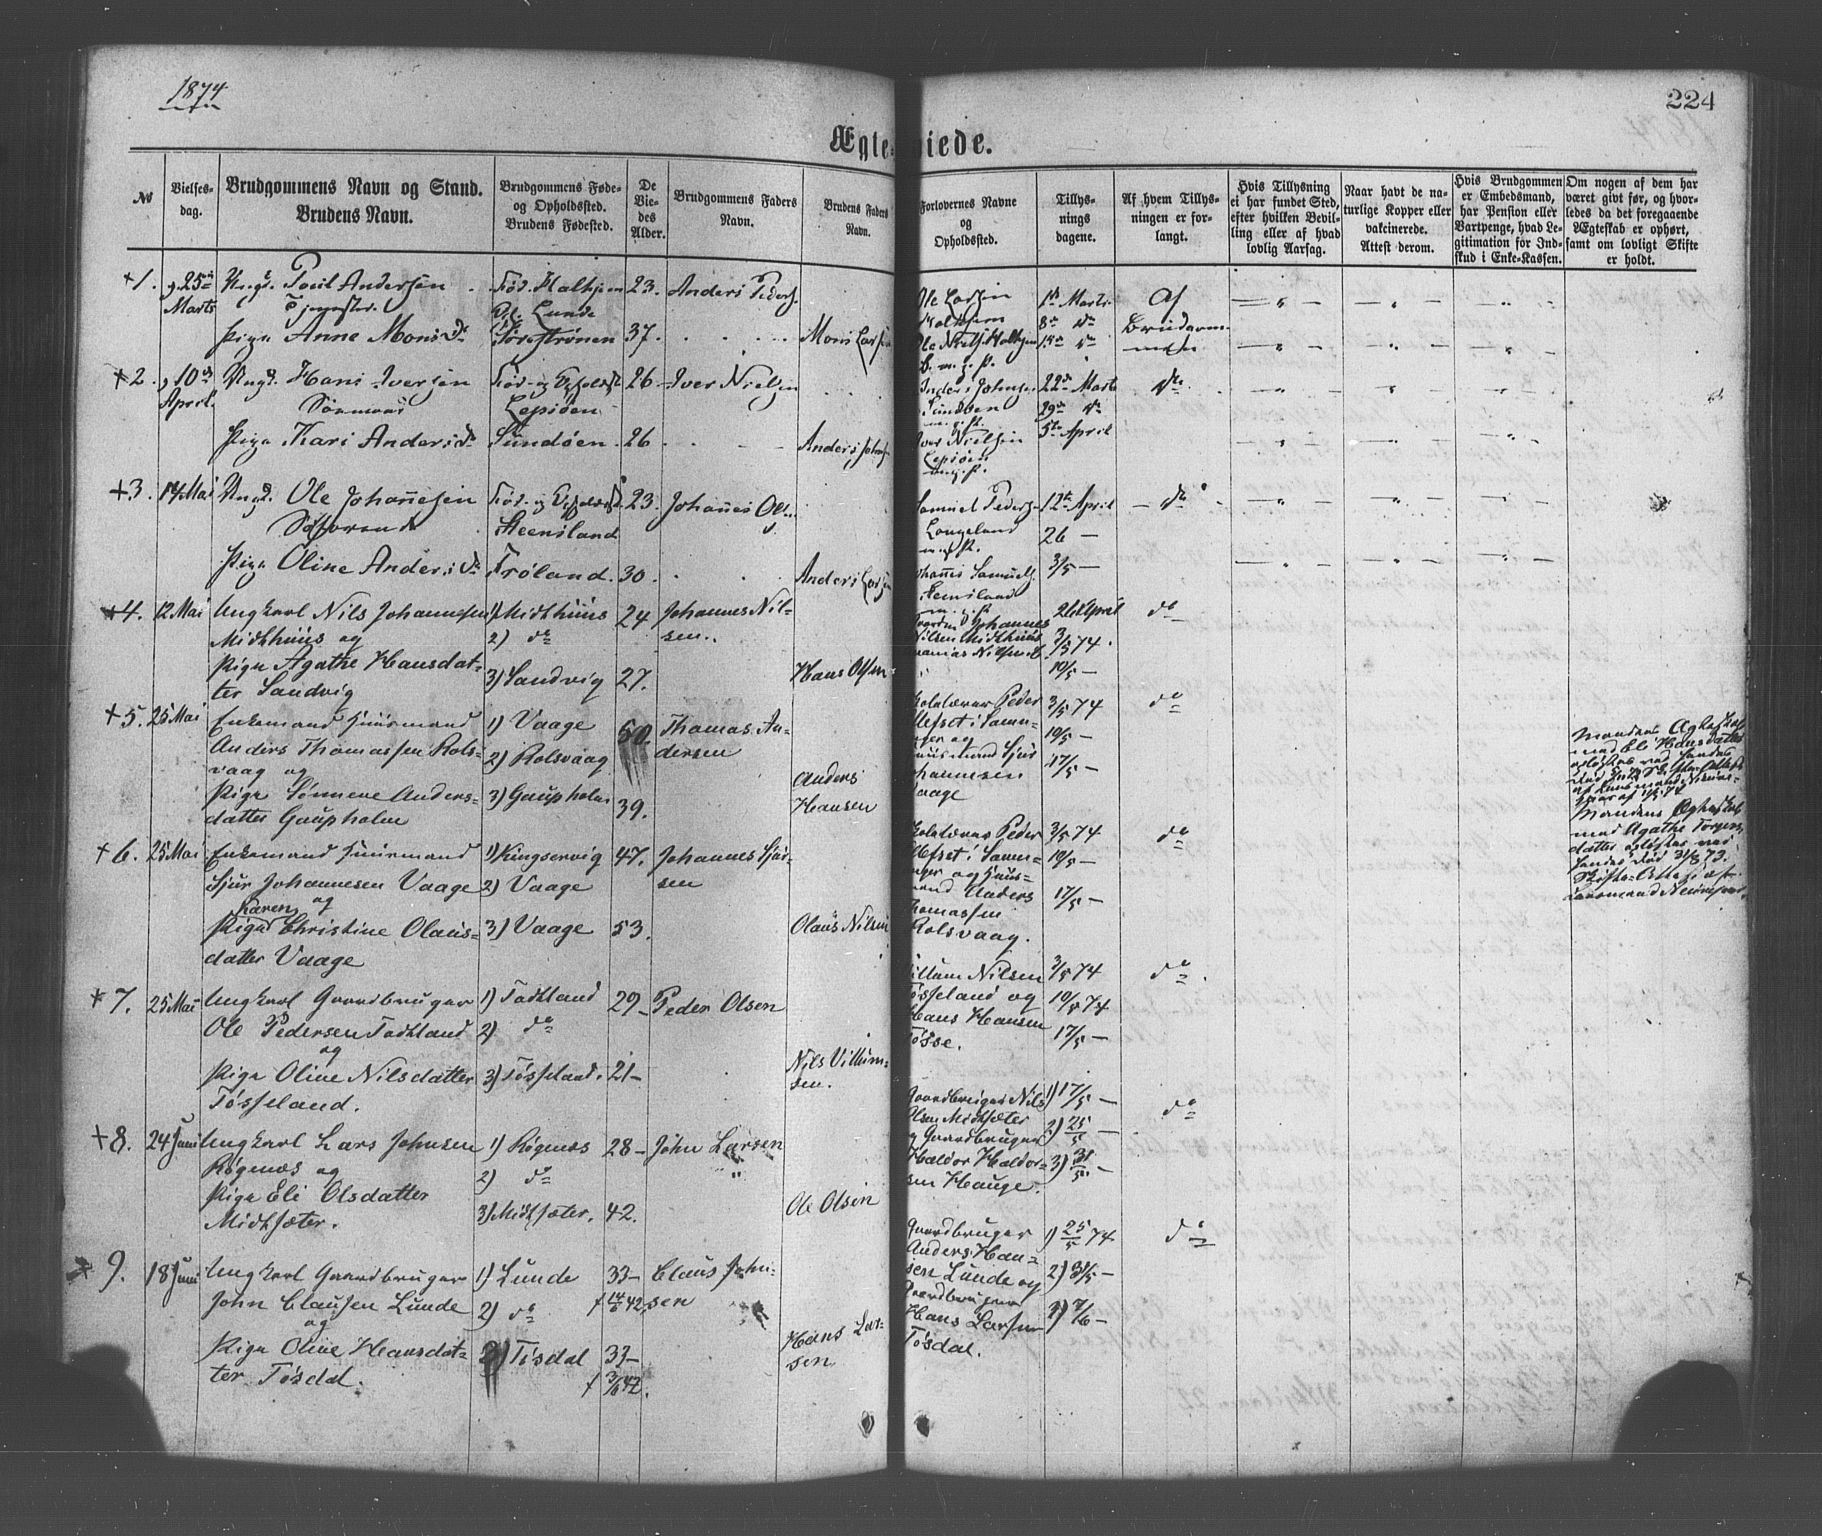 1874
224
Ægteviede.
No
Vielses-
dag.
Brudgommens Navn og Stand.
Brudens Navn.
Brudgommens Føde-
og Opholdsted.
Brudens Fødested.
De
Vie-
des
Alder.
Brudgommens Faders
Navn.
Brudens Faders
Navn.
Forlovernes Navne
og
Opholdsted.
Tillys-
nings
dagene.
Af hvem Tillys-
ningen er for-
langt.
Hvis Tillysning
ei har fundet Sted,
efter hvilken Bevil-
ling eller af hvad
lovlig Aarsag.
Naar havt de na-
turlige Kopper eller
vakcinerede.
Attest derom.
Hvis Brudgommen
er Embedsmand,
har Pension eller
Vartpenge, hvad Le-
gitimation for Ind-
skud i Enke-Kassen.
Om nogen af dem har
været givt før, og hvor-
ledes da det foregaaende
Ægteskab er ophørt,
samt om lovligt Skifte
er holdt.
+1. 25 Marts Ungk. Poul Andersen
Fød. Halhjem
Lunde
23. Anders Peders.
Pige Anne Monsd.
37.
Mons Lars
Ole Larsen
Halhjem
Ole Niels. Halhjem
1ste Marts
8de do
15de do
Af
Brudgom-
men
+2. 10de April. Ungk. Hans Iversen
Fød- og Opholdst.
Lepsøen
26 Iver Nielsen
Pige Kari Andersd.
Sundøen. 26
Anders Johns
Anders Johnsen
Sundøen
Iver Nielsen
Lepsøen
22de Marts
29de do
5te April
do
+3. 14 Mai Ungk. Ole Johannesen
Fød- og Opholdst.
Heensland
23. Johannes Ols.
Pige Oline Andersd.
Frøland. 30.
Anders Larsen
Samuel Peders.
Langeland
Johannes Samuels.
12te April
26 —
3/5 —
do
+4. 12 Mai Ungkarl Nils Johannesen
Midthuus og
Pige Agathe Hansdat-
ter Sandvig
1) Midthuus
2) do
3) Sandvig
24
27.
Johannes Nil-
sen.
Hans Olsen
Johannes
Nilsen Midthuus
26 April
3/5 74.
10/5 —
do
+5. 25 Mai Enkemand Huusmand
Anders Thomassen Rols-
vaag og
Pige Sønneve Anders-
datter Gaupholm
1) Vaage
2) Rolsvaag
3) Gaupholm
50.
39.
Thomas An-
dersen
Anders
Hansen
Kolalærer Peder
Røfset i Samn-
anger og
Huusmand Sjur
Johannesen
Vaage
3/5 74
10/5 —
17/5 —
do
Mandens Ægteskab
med Eli Hansdatter
+6. 25 Mai Enkemand Huusmand
Sjur Johannesen Vaage
og
Karen
Pige Christine Olaus-
datter Vaage
1) Kingservig
2) Vaage
3) Vaage
47.
53.
Johannes Sjur-
sen
Olaus Nilsen
Anders
Thomassen
Rolsvaag.
3/5 74
10/5 —
17/5 —
do
Mandens Ægteskab
med Agathe Torgers-
datter opløstes ved
+7. 25 Mai Ungkarl Gaardbruger
Ole Pedersen Tadtland
og
Pige Oline Nilsdatter
Tøsseland.
1) Tadtland
2) do
3) Tøsseland.
29 —
21 —
Peder Olsen
Nils Villum-
sen.
Villum Nilsen
Tøsseland og
Hans Hansen
Tøsse.
3/5 74
10/5 74
17/5 —
do
+8. 24 Juni Ungkarl Lars Johnsen
Røgenæs og
Pige Eli Olsdatter
Midtsæter.
1) Røgenæs
2) do
3) Midtsæter.
28 —
42.
John Larsen
Ole Olsen
Gaardbruger Nils
Olsen Midtsæter
og Gaardbruger
Haldor Haldor-
sen Hauge.
1) 17/5 —
2) 25/5 —
3) 31/5 —
do
9. 18 Juni Ungkarl Gaardbruger
John Clausen Lunde
og
Pige Oline Hansdat-
ter Tøsdal.
1) Lunde
2) do
3) Tøsdal
33 —
33 —
Claus John-
sen
Hans Lar-
sen
Gaardbruger
Anders Han-
sen Lunde og
Gaardbruger
Hans Larsen
Tøsdal.
1) 25/5 74
2) 31/5 —
3) 7/6 —
do